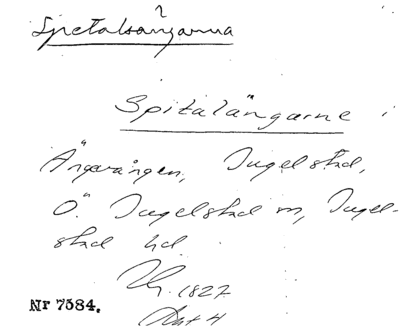 Spetalsängarna
Spitalängarne
Ängavången, Ingelstad,
Ö. Ingelstad sn, Ingel-
stad hd.
1827
Akt 4
Nr 7584.